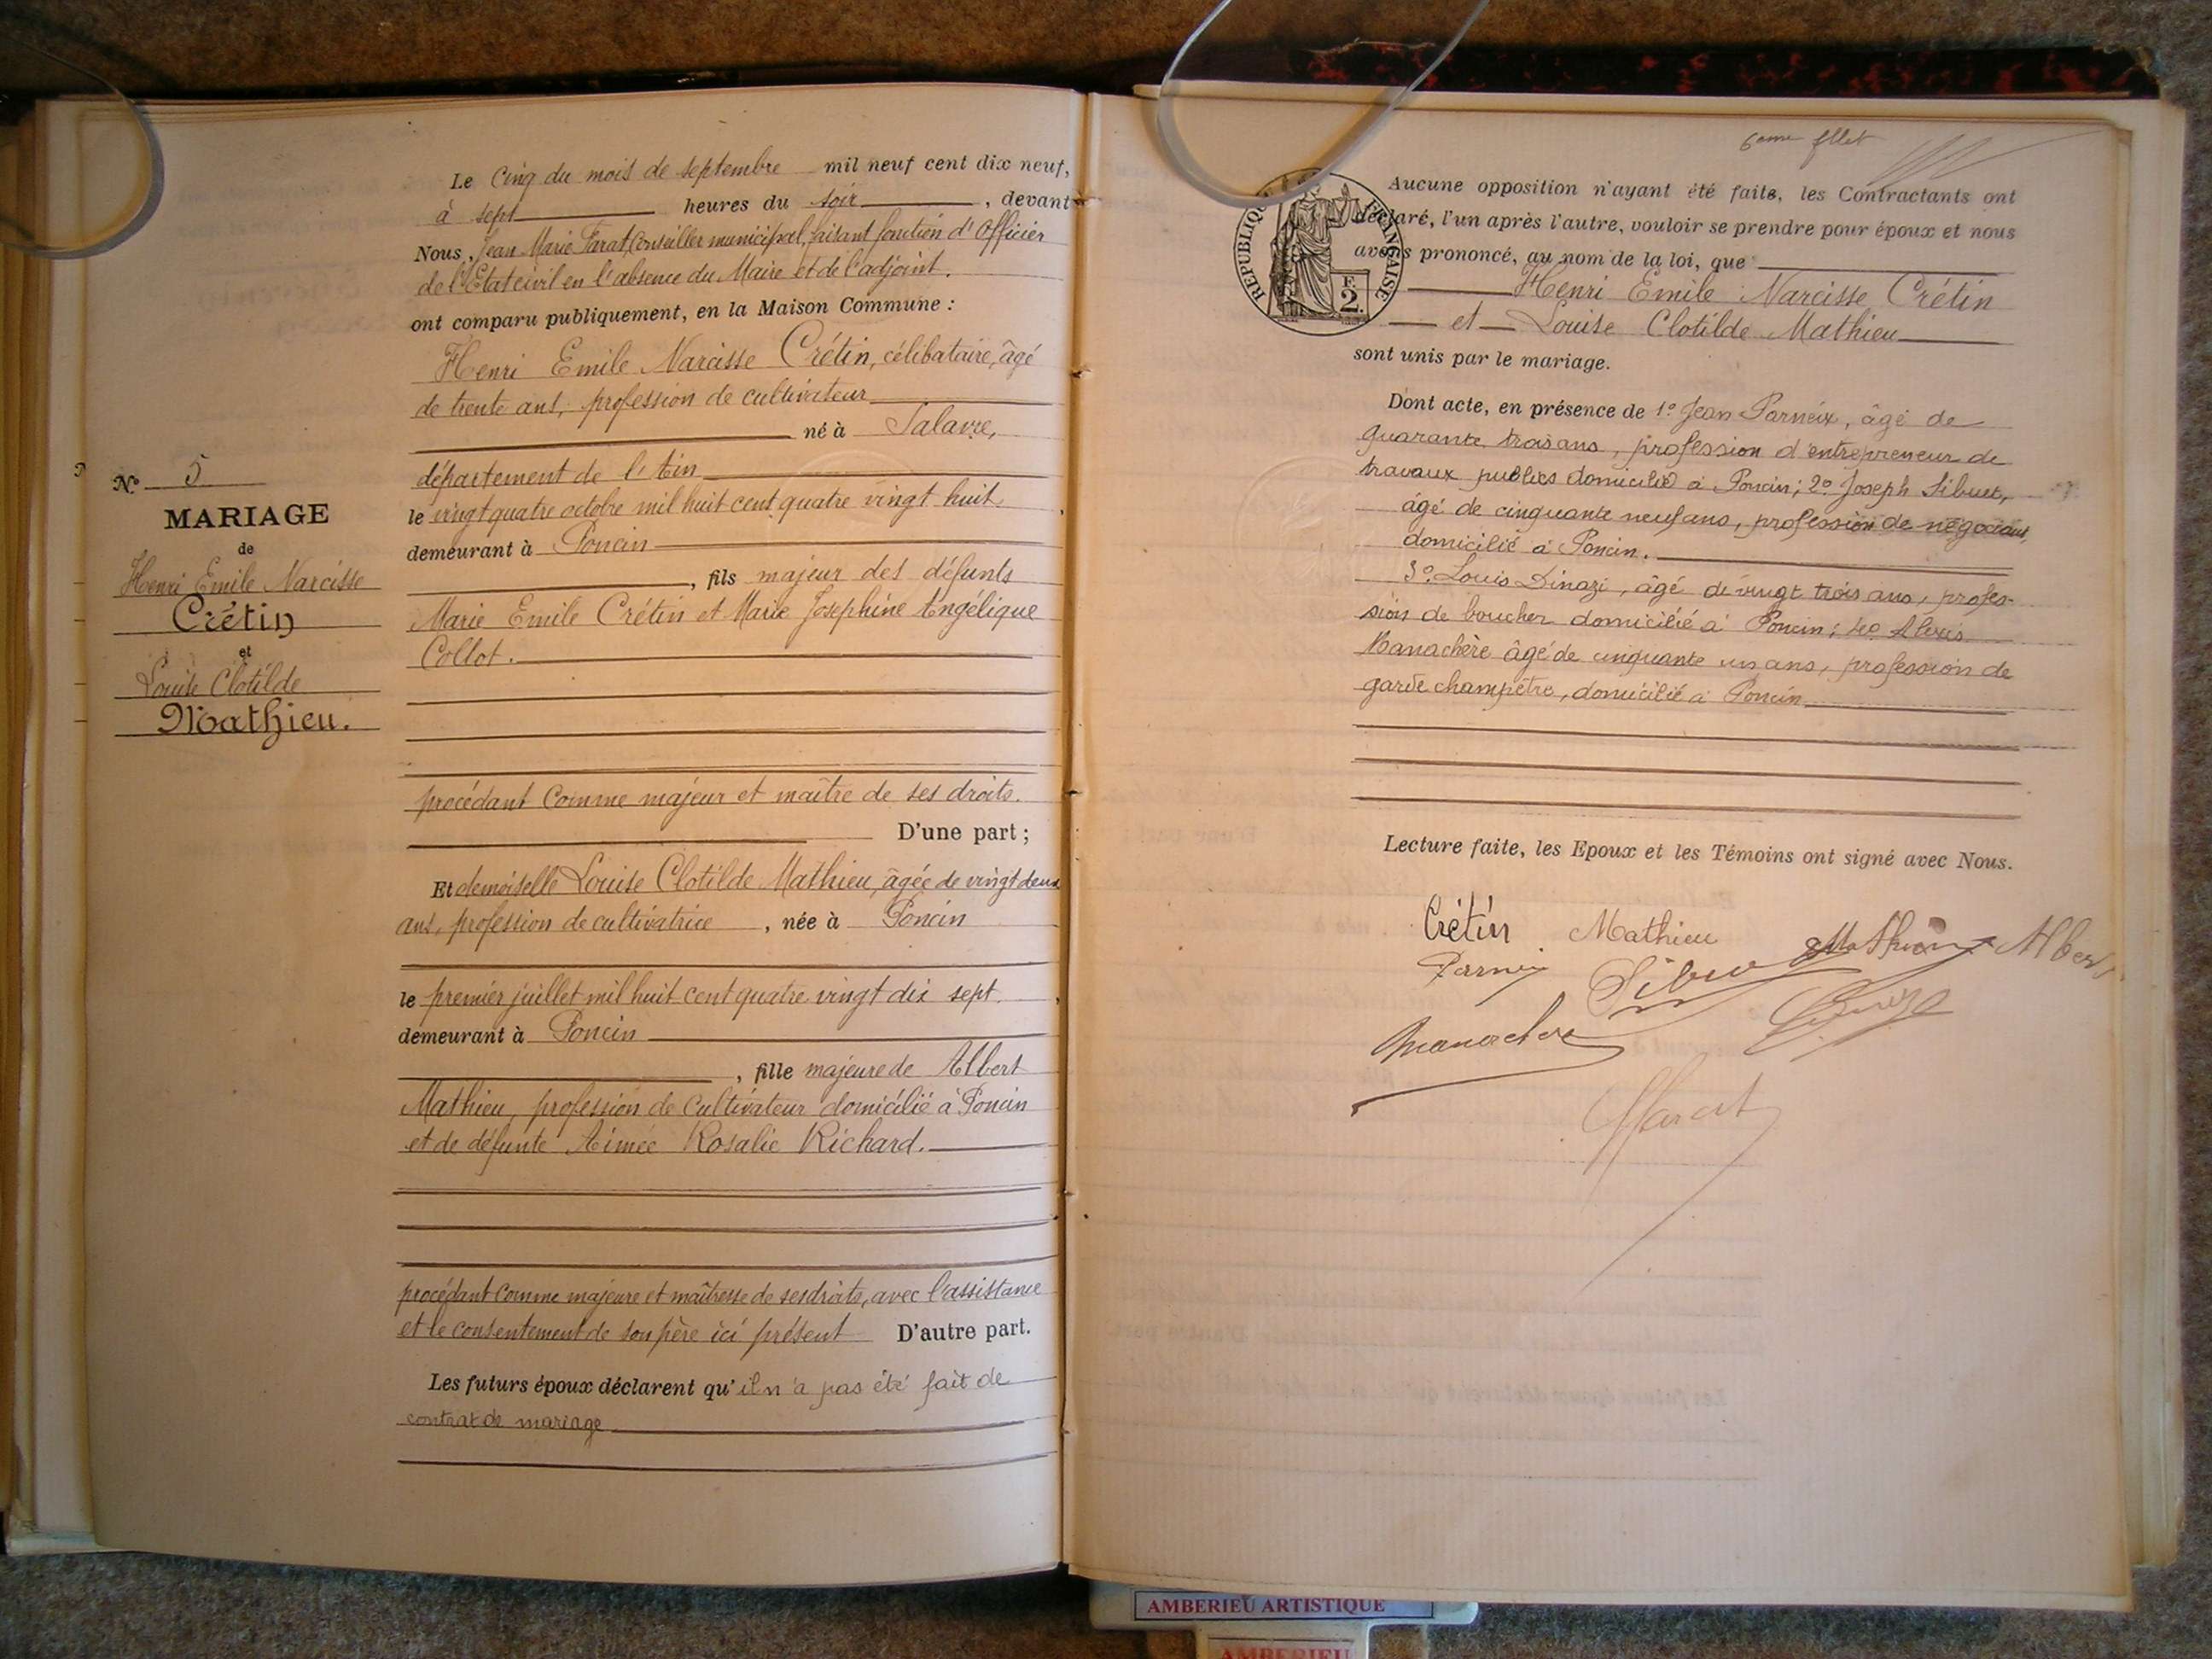 Le Cinq du mois de septembre mil neuf cent dix neuf,
à sept heures du soir, devant
Nous, Jean Marie Farat, Conseiller municipal, faisant fonction d'Officier
de l'Etat civil en l'absence du Maire et de l'adjoint.
ont comparu publiquement, en la Maison Commune :
Henri Emile Narcisse Crétin, célibataire, âgé
de trente ans, profession de cultivateur
né à Salavre,
département de l'Ain
le vingt quatre octobre mil huit cent quatre vingt huit,
demeurant à Poncin
, fils majeur des défunts
Marie Emile Crétin et Marie Joséphine Angélique
Collot.
procédant comme majeur et maître de ses droits.
D'une part ;
Et demoiselle Louise Clotilde Mathieu, âgée de vingt deux
ans, profession de cultivatrice, née à Poncin
le premier juillet mil huit cent quatre vingt dix sept,
demeurant à Poncin
, fille majeure de Albert
Mathieu, profession de cultivateur domicilié à Poncin
et de défunte Aimée Rosalie Richard.
procédant comme majeure et maîtresse de ses droits, avec l'assistance
et le consentement de son père ici présent D'autre part.
Les futurs époux déclarent qu'il n'a pas été fait de
contrat de mariage
N° 5
MARIAGE
de
Henri Emile Narcisse
Crétin
et
Louise Clotilde
Mathieu.
6eme fllet
REPUBLIQUE FRANÇAISE
F.
2.
Aucune opposition n'ayant été faite, les Contractants ont
déclaré, l'un après l'autre, vouloir se prendre pour époux et nous
avons prononcé, au nom de la loi, que
Henri Emile Narcisse Crétin
et Louise Clotilde Mathieu
sont unis par le mariage.
Dont acte, en présence de 1° Jean Parneix, âgé de
quarante trois ans, profession d'entrepreneur de
travaux publics domicilié à Poncin; 2° Joseph Sibuet,
âgé de cinquante neuf ans, profession de négociant,
domicilié à Poncin.
3° Louis Dinazi, âgé de vingt trois ans, profes-
sion de boucher domicilié à Poncin; 4° Alexis
Manachère âgé de cinquante un ans, profession de
garde champêtre, domicilié à Poncin
Lecture faite, les Epoux et les Témoins ont signé avec Nous.
Crétin Mathieu Mathieu Albert
Parneix Sibuet
Manachère
Farat
AMBERIEU ARTISTIQUE
AMBERIEU